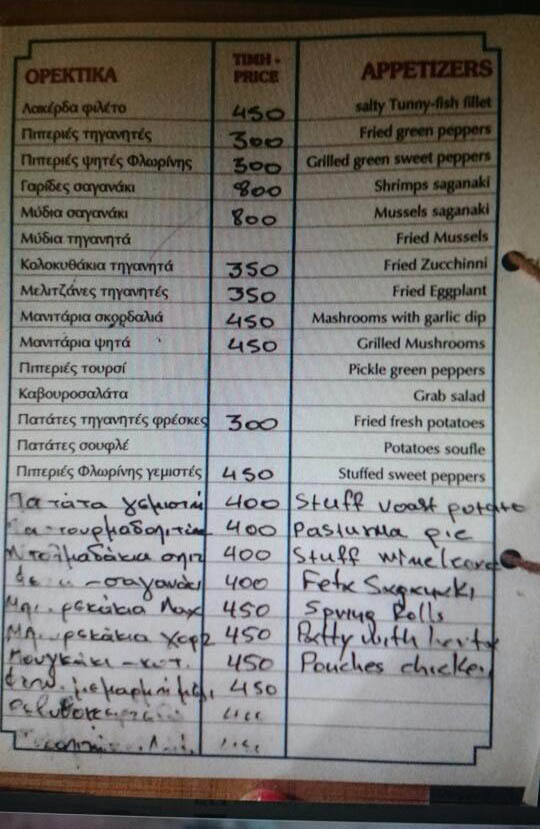 ΟΡΕΚΤΙΚΑ ΤΙΜΗ - PRICE APPETIZERS
Λακέρδα φιλέτο 450 salty Tunny-fish fillet
Πιπεριές τηγανητές 300 Fried green peppers
Πιπεριές ψητές Φλωρίνης 300 Grilled green sweet peppers
Γαρίδες σαγανάκι 800 Shrimps saganaki
Μύδια σαγανάκι 800 Mussels saganaki
Μύδια τηγανητά Fried Mussels
Κολοκυθάκια τηγανητά 350 Fried Zucchinni
Μελιτζάνες τηγανητές 350 Fried Eggplant
Μανιτάρια σκορδαλιά 450 Mashrooms with garlic dip
Μανιτάρια ψητά 450 Grilled Mushrooms
Πιπεριές τουρσί Pickle green peppers
Καβουροσαλάτα Grab salad
Πατάτες τηγανητές φρέσκες 300 Fried fresh potatoes
Πατάτες σουφλέ Potatoes soufle
Πιπεριές Φλωρίνης γεμιστές 450 Stuffed sweet peppers
Πατάτα γεμιστή 400 Stuff roast potato
400 Pasturma pie
400 Stuff
σαγανάκι 400 Feta
450 Spring Rolls
450 Patty with
450 Pouches chicken
450